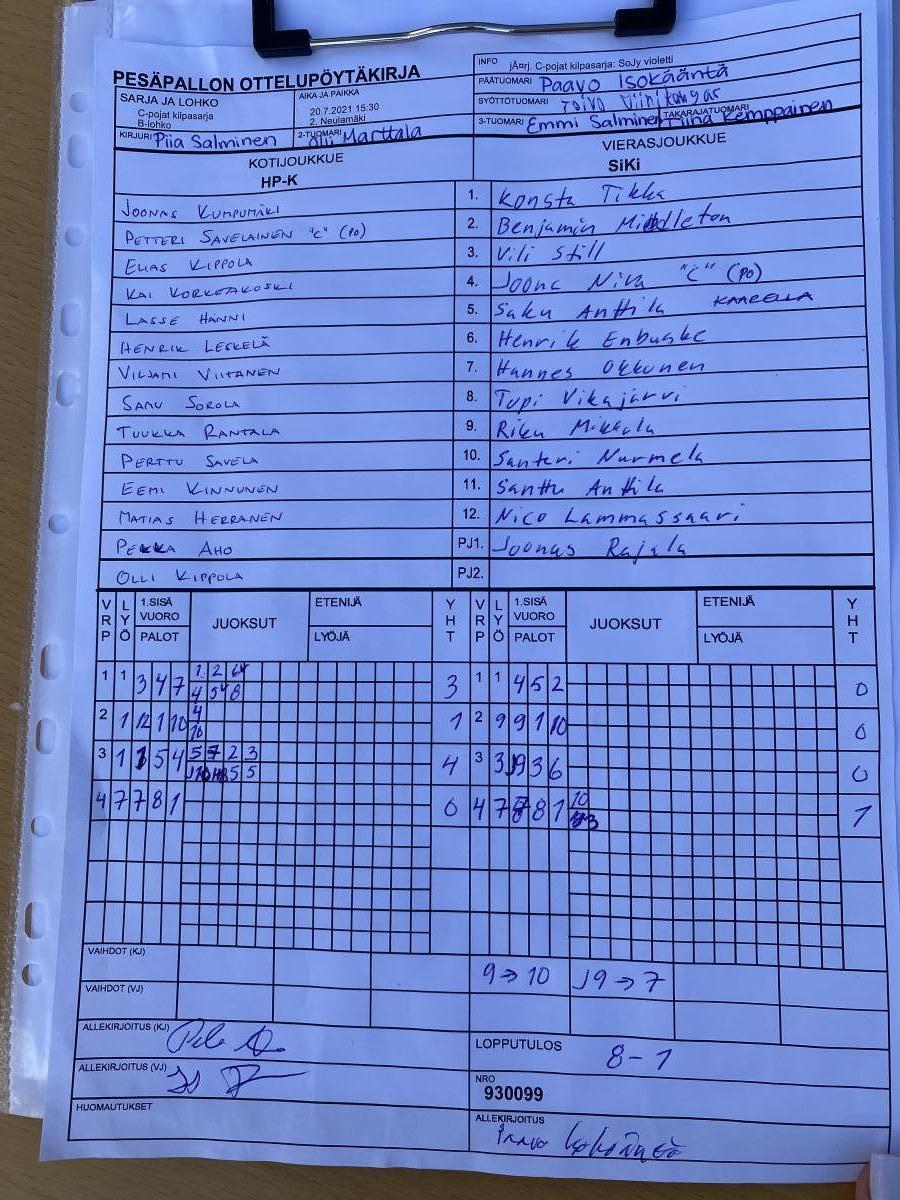 PESÄPALLON OTTELUPÖYTÄKIRJA
INFO jÃ¤rj. C-pojat kilpasarja: SoJy violetti
PÄÄTUOMARI Paavo Isokääntä
SARJA JA LOHKO
C-pojat kilpasarja
B-lohko
AIKA JA PAIKKA
20.7.2021 15:30
2. Neulamäki
SYÖTTÖTUOMARI Toivo Viinikangas
KIRJURI Piia Salminen
2-TUOMARI Olli Marttala
3-TUOMARI Emmi Salminen
TAKARAJATUOMARI Tiina Kemppainen
KOTIJOUKKUE
HP-K
VIERASJOUKKUE
SiKi
JOONAS KUMPUMÄKI 1. Konsta Tikka
PETTERI SAVELAINEN "C" (PO) 2. Benjamin Middleton
ELIAS KIPPOLA 3. Vili Still
KAI KORKEAKOSKI 4. Joona Niva "C" (PO)
LASSE HÄNNI 5. Saku Anttila KAARELLA
HENRIK LESKELÄ 6. Henrik Enbuske
VILJAMI VIITANEN 7. Hannes Okkonen
SAMU SOROLA 8. Topi Vikajärvi
TUUKKA RANTALA 9. Riku Mikkola
PERTTU SAVELA 10. Santeri Nurmela
EEMI KINNUNEN 11. Santtu Anttila
MATIAS HERRANEN 12. Nico Lammassaari
PEKKA AHO PJ1. Joonas Rajala
OLLI KIPPOLA PJ2.
VRP LYÖ 1.SISÄ VUORO PALOT JUOKSUT ETENIJÄ LYÖJÄ YHT VRP LYÖ 1.SISÄ VUORO PALOT JUOKSUT ETENIJÄ LYÖJÄ YHT
1 1 3 4 7 1 2 3 1 1 4 5 2 0
4 5 8
2 1 12 1 10 4 1 2 9 9 1 10 0
10
3 1 5 4 5 7 2 3 4 3 3 J9 3 6 0
J10 5 5
4 7 7 8 1 0 4 7 8 1 10 1
3
VAIHDOT (KJ) 9→10 J9→7
VAIHDOT (VJ)
ALLEKIRJOITUS (KJ)
LOPPUTULOS 8-1
ALLEKIRJOITUS (VJ)
NRO
930099
HUOMAUTUKSET
ALLEKIRJOITUS
Paavo Isokääntä